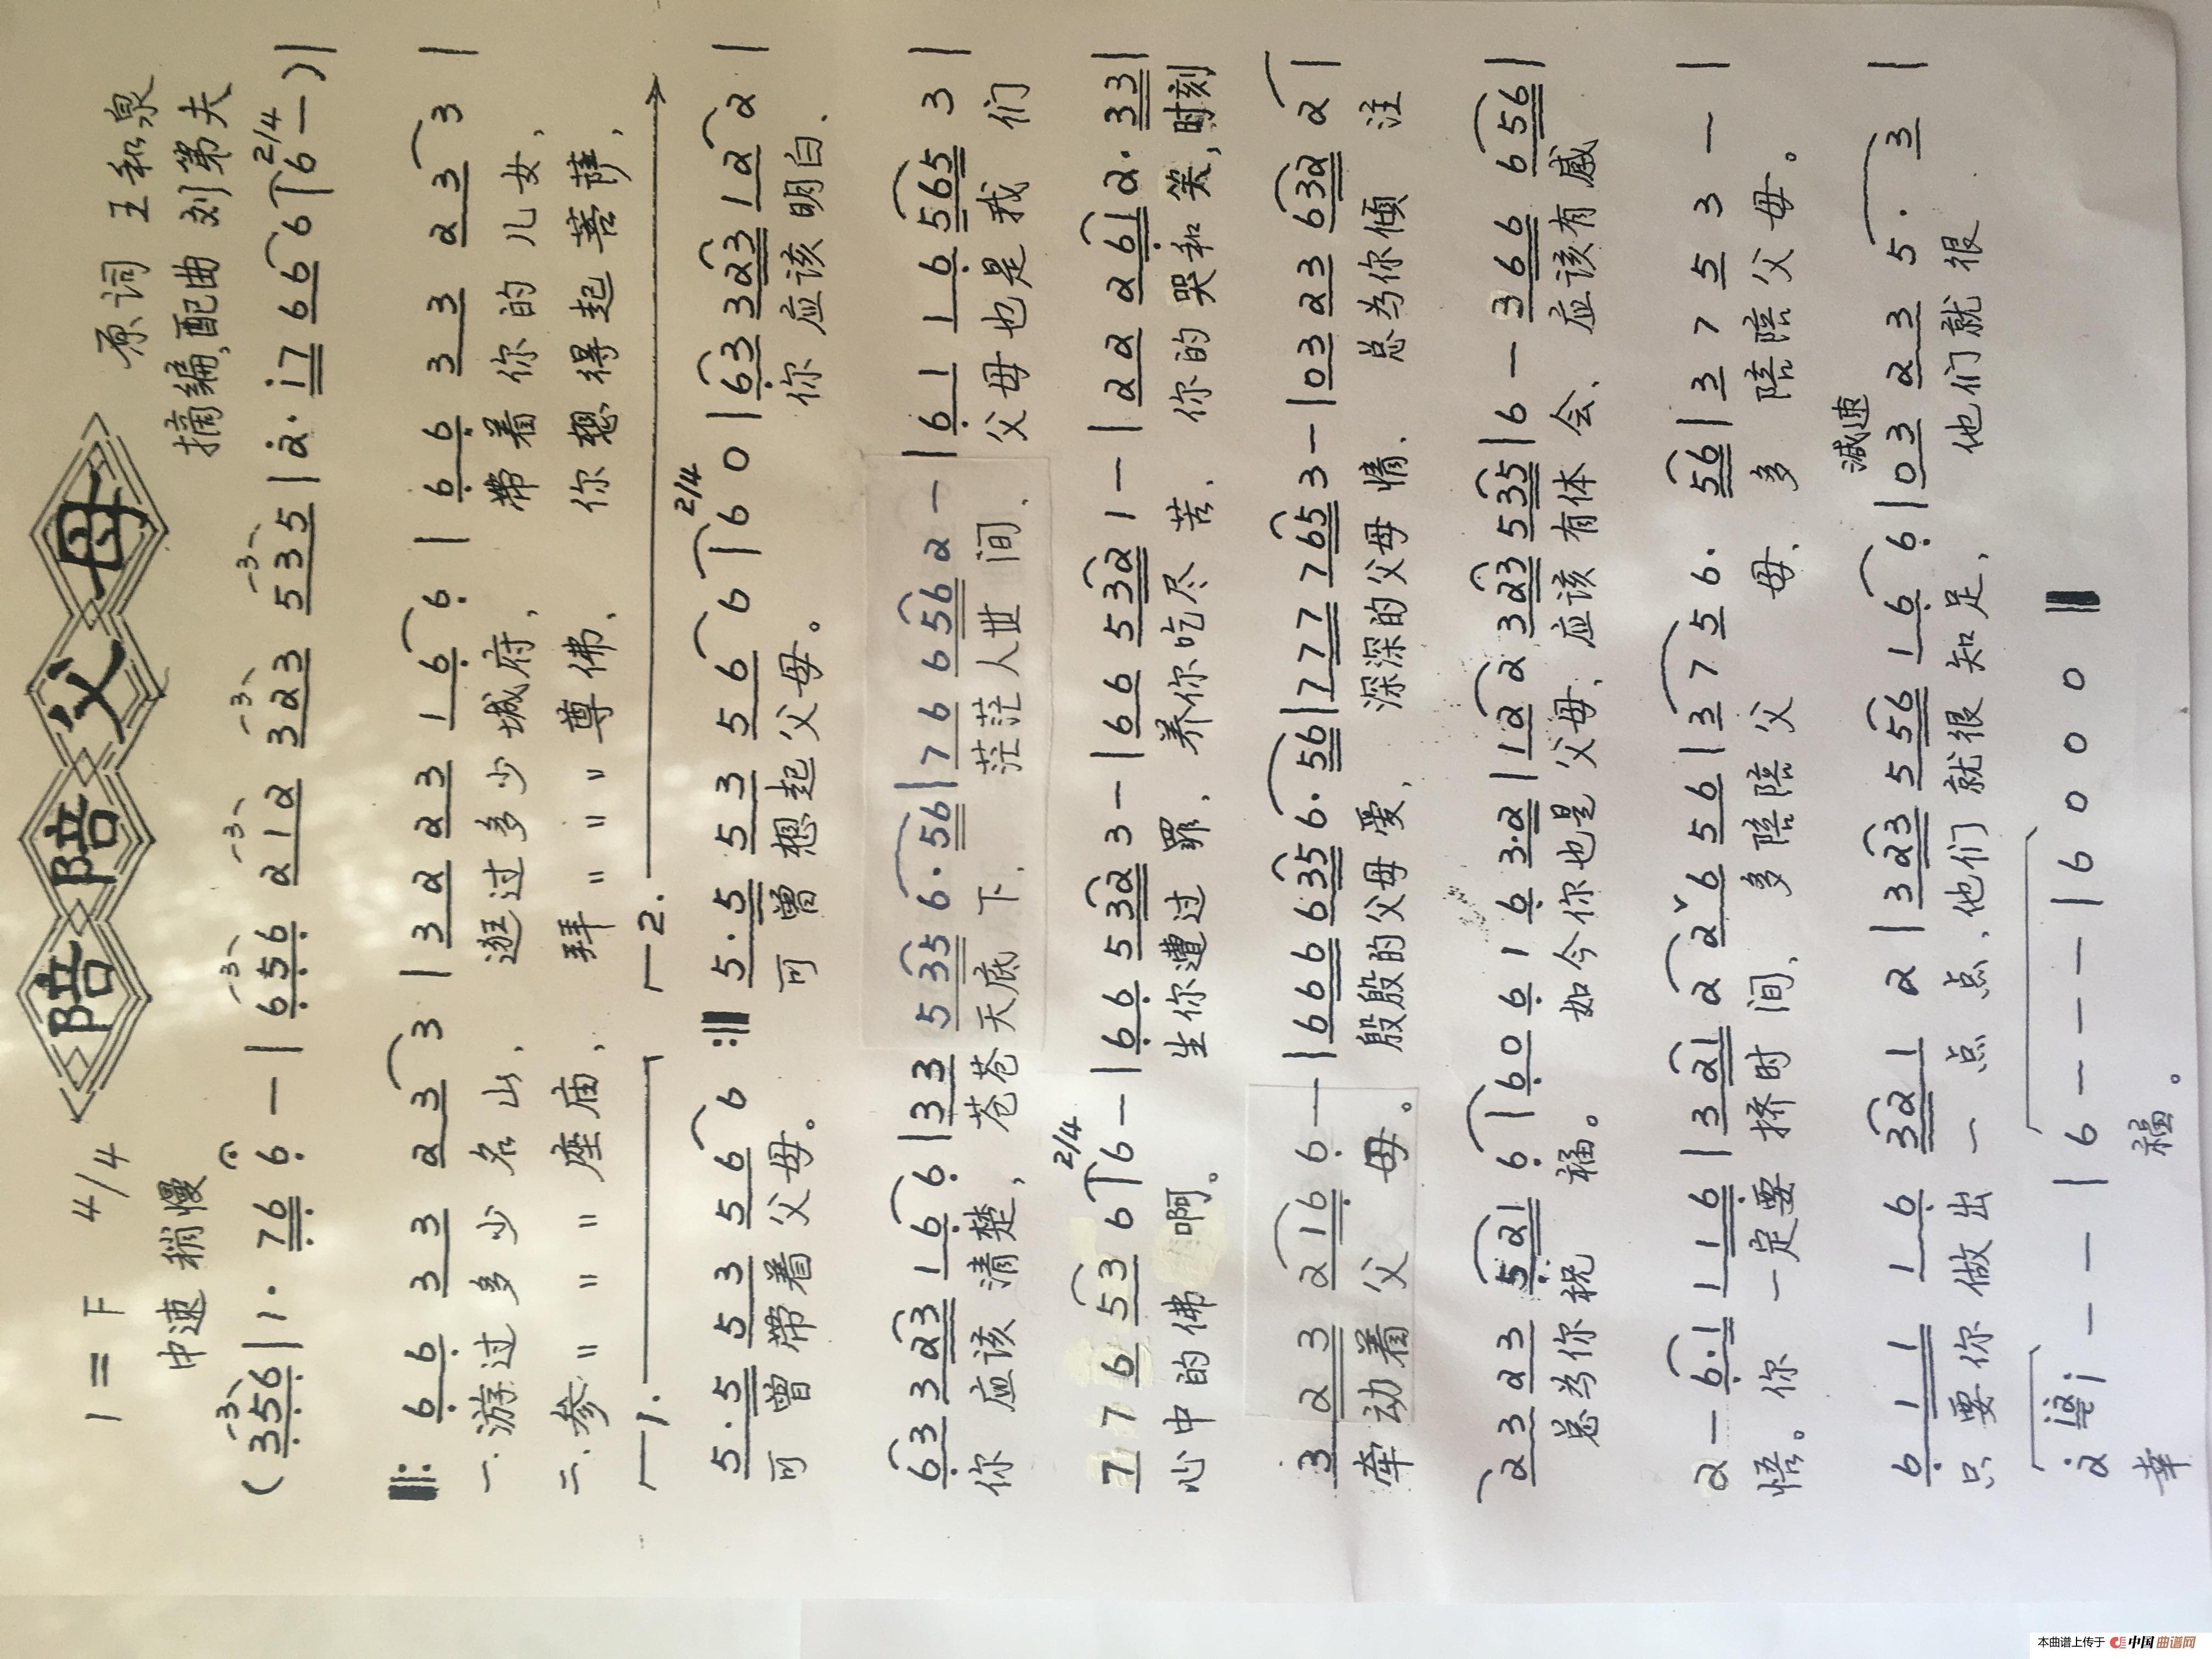 陪陪父母
1=F 4/4
原词 王和泉
中速稍慢
摘编,配曲 刘第夫
(3 5 5 6 | 1· 7 6 6 - | 6 5 6 2 1 2 3 2 3 5 3 5 | 2· 1 7 6 6 6 | 6 - ) | 2/4
‖: 6 6 3 3 2 3 3 | 3 2 2 3 1 6 6 | 6 6 3 3 2 3 3 |
一.游过多少名山, 逛过多少城府, 带着你的儿女,
二.参〃〃〃座庙, 拜〃〃〃尊佛, 你想得起菩萨,
1. 2.
5·5 5 3 5 6 6 :‖ 5·5 5 3 5 6 6 | 2/4 6 0 | 6 3 3 2 3 1 2 2 |
可曾带着父母。 可曾想起父母。 你应该明白、
6 3 3 2 3 1 6 6 | 3 3 5 3 5 6· 5 6 | 7 6 6 5 6 2 - | 6 1 1 6 5 6 5 3 |
你应该清楚, 苍苍天底下、茫茫人世间、 父母也是我们
7 7 6 5 3 6 | 2/4 6 - | 6 6 5 3 2 3 - | 6 6 5 3 2 1 - | 2 2 2 6 1 2· 3 3 |
心中的佛啊。 生你遭过罪, 养你吃尽苦、 你的哭和笑,时刻
3 2 3 2 1 6 6 - | 6 6 6 6 3 5 6· 5 6 | 7 7 7 7 6 5 3 - | 0 3 2 3 6 3 2 2 |
牵动着父母。 殷殷的父母爱, 深深的父母情、 总为你倾注
2 3 2 3 5 2 1 6 | 6 0 6 1 6 3·2 | 1 2 2 3 2 3 5 3 5 | 6 - 3 6 6 6 5 6 |
总为你祝福。 如今你也是父母、应该有体会、应该有感
2 - 6·1 1 1 6 | 3 2 1 2 2 ˇ 6 5 6 | 3 7 5 6· 5 6 | 3 7 5 3 - |
悟。你一定要挤时间、多陪陪父母、多陪陪父母。
减速
6 1 1 1 6 3 2 1 2 | 3 2 3 5 5 6 1 6 6 | 0 3 2 3 5· 3 |
只要你做出一点点、他们就很知足, 他们就很
2 1 2 1 - - | 6 - - - | 6 0 0 0 ‖
幸福。
本曲谱上传于 中国曲谱网